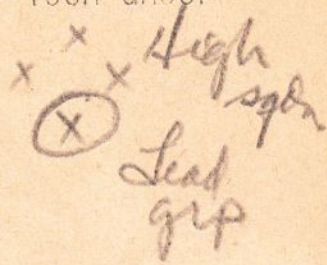 High
sqdn
Lead
grp